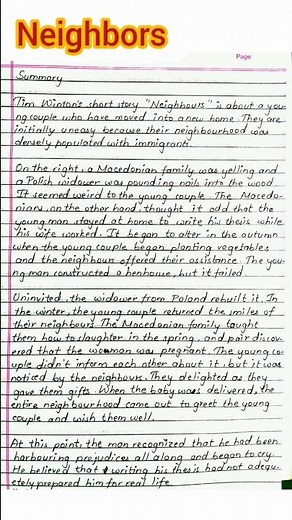 Neighbors
Page:
Summary
Tim Winton's short story "Neighbours" is about a you-
ng couple who have moved into a new home. They are
initially uneasy because their neighbourhood was
densely populated with immigrants.
On the right, a Macedonian family was yelling and
a Polish widower was pounding nails into the wood.
It seemed weird to the young couple. The Macedo-
nians, on the other hand, thought it odd that the
young man stayed at home to write his thesis while
his wife worked. It began to alter in the autumn
when the young couple began planting vegetables
and the neighbours offered their assistance. The you-
ng man constructed a henhouse, but it failed.
Uninvited, the widower from Poland rebuilt it. In
the winter, the young couple returned the smiles of
their neighbours. The Macedonian family taught
them how to slaughter in the spring, and pair discov-
ered that the woman was pregnant. The young co-
uple didn't inform each other about it, but it was
noticed by the neighbours. They delighted as they
gave them gifts. When the baby was delivered, the
entire neighbourhood came out to greet the young
couple and wish them well.
At this point, the man recognized that he had been
harbouring prejudices all along and began to cry.
He believed that writing his thesis had not adequ-
etely prepared him for real life.